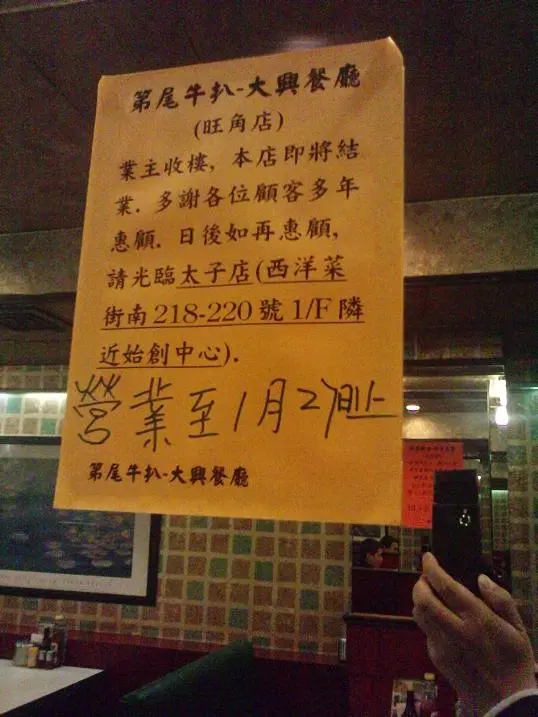 第尾牛扒-大興餐廳
(旺角店)
業主收樓, 本店即將結
業. 多謝各位顧客多年
惠顧. 日後如再惠顧,
請光臨太子店(西洋菜
街南218-220號1/F隣
近始創中心).
營業至1月2日止
第尾牛扒-大興餐廳